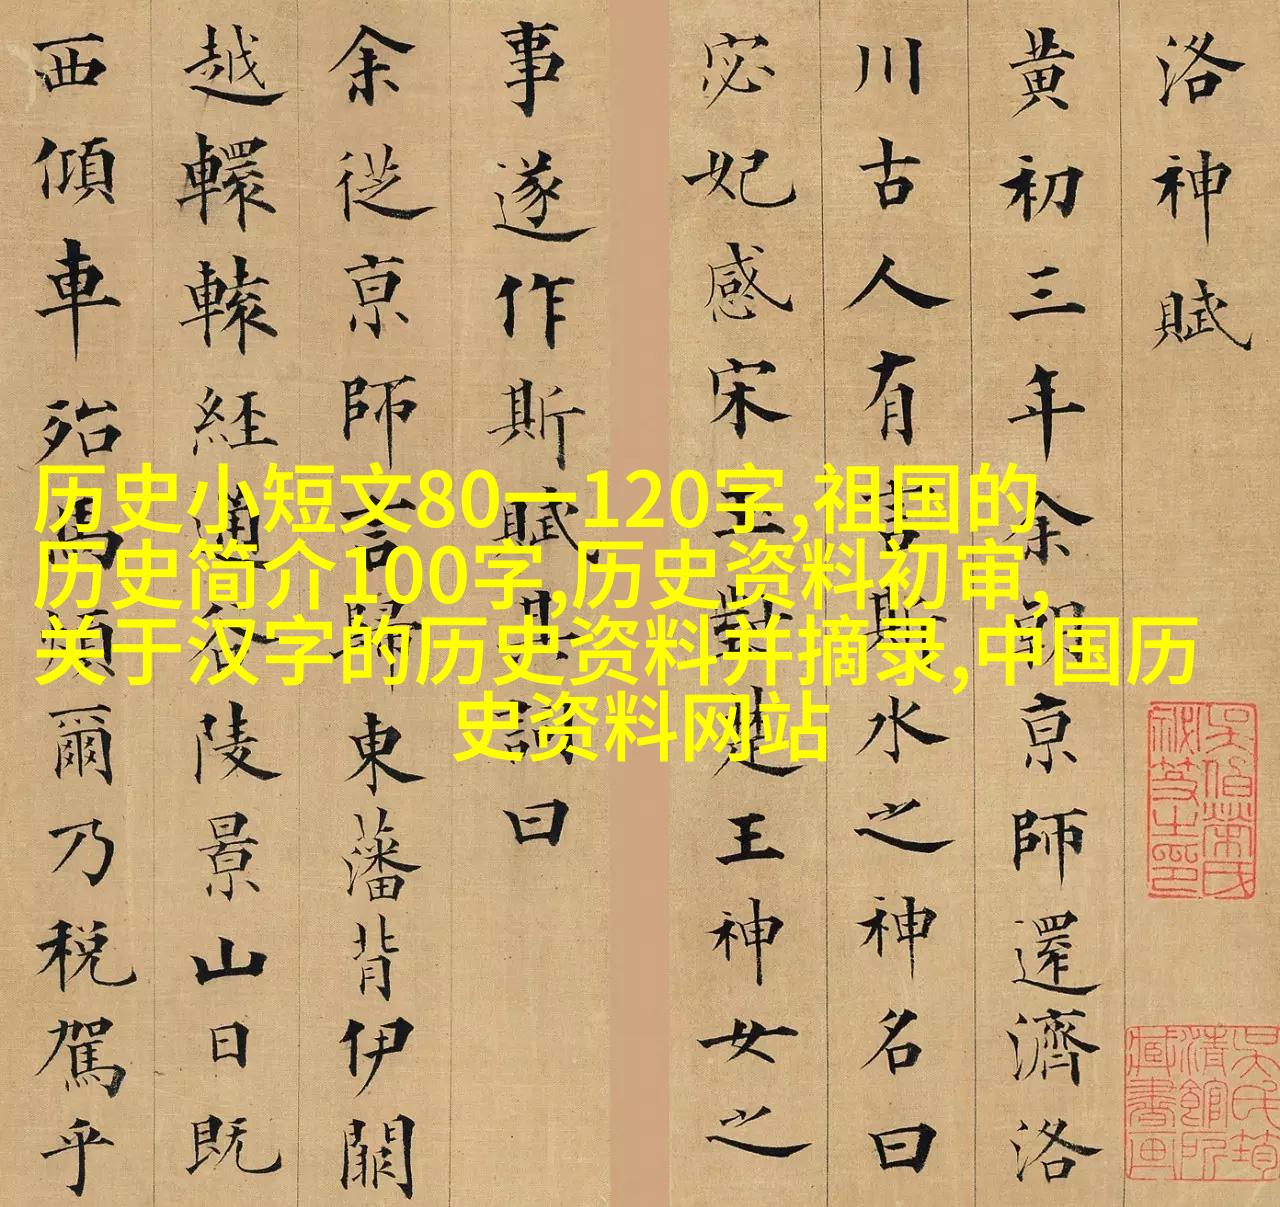 洛神賦
黃初三年余朝京師還濟洛
川古人有言斯水之神名曰
宓妃感宋玉對楚王神女之
事遂作斯賦其詞曰
余從京師言歸東藩背伊闕
越轘轅經通谷陵景山日既
西傾車殆馬煩爾乃稅駕乎
吳氏筠清館所藏書画
历史小短文80一120字,祖国的
历史简介100字,历史资料初审,
关于汉字的历史资料并摘录,中国历
史资料网站